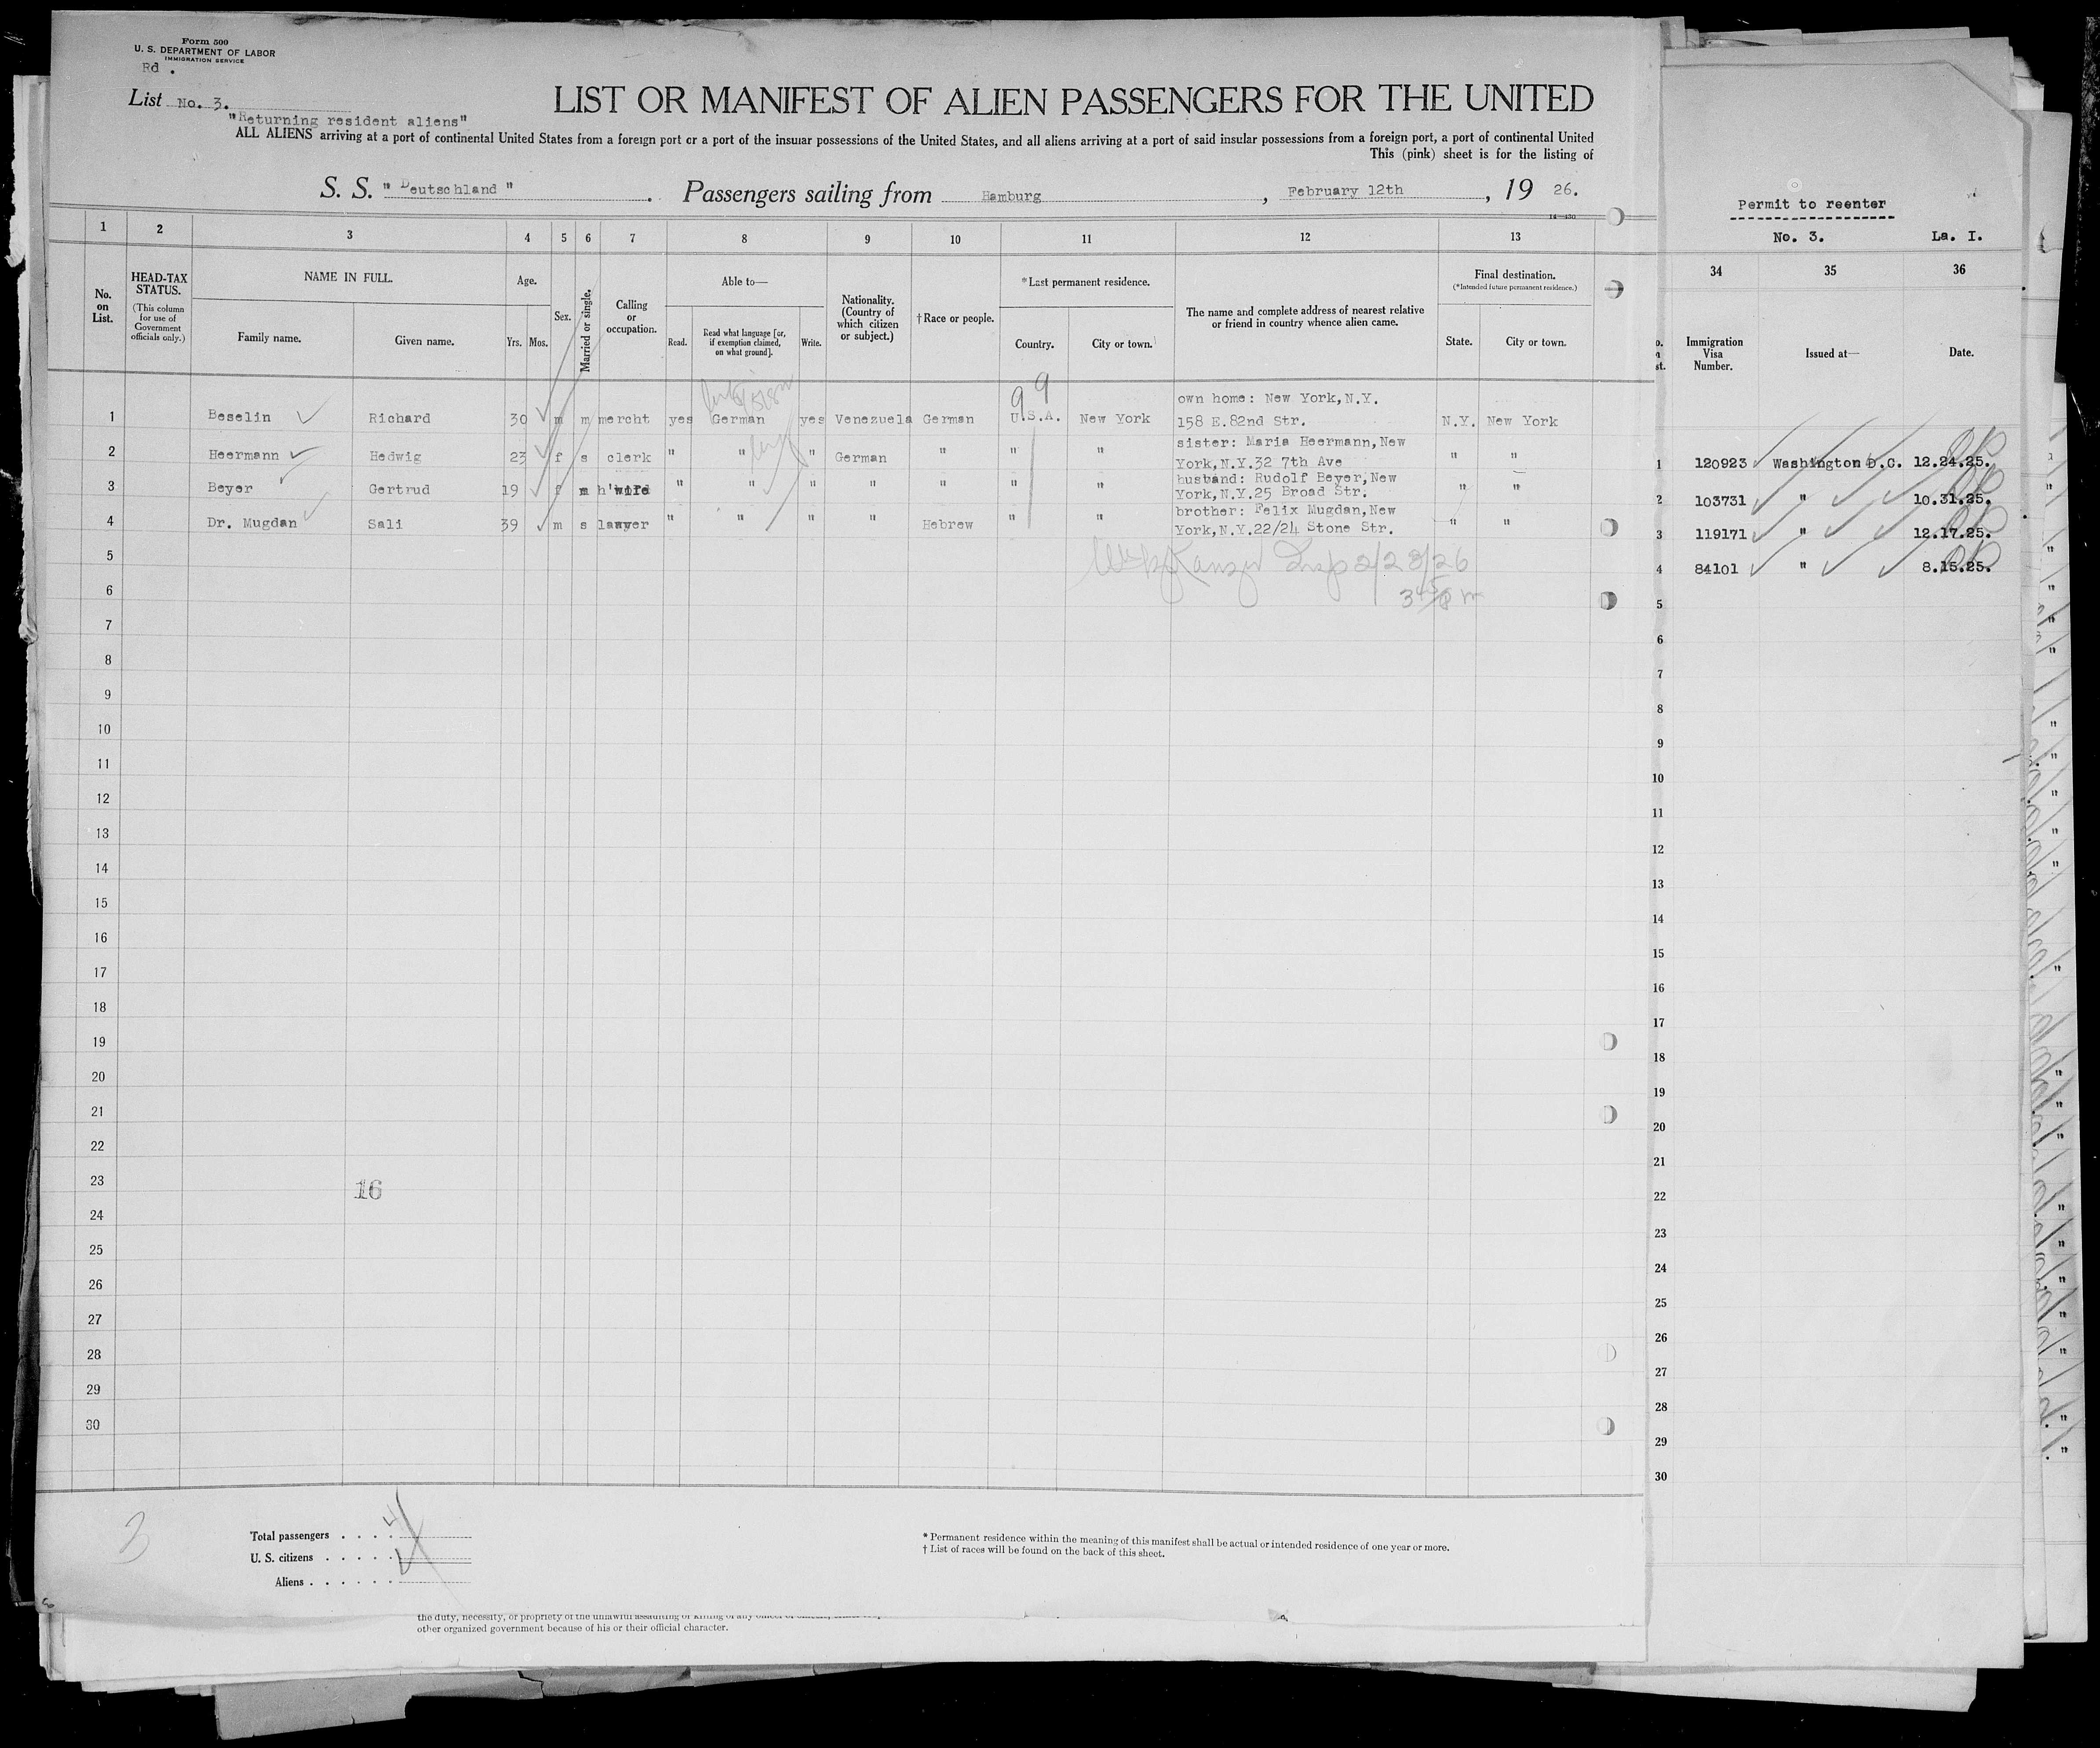 Form 500
U. S. DEPARTMENT OF LABOR
IMMIGRATION SERVICE
Rd .
List No. 3.
"Returning resident aliens"
LIST OR MANIFEST OF ALIEN PASSENGERS FOR THE UNITED
ALL ALIENS arriving at a port of continental United States from a foreign port or a port of the insular possessions of the United States, and all aliens arriving at a port of said insular possessions from a foreign port, a port of continental United
This (pink) sheet is for the listing of
S. S. "Deutschland". Passengers sailing from Hamburg, February 12th, 19 26.
14—430
Permit to reenter
No. 3. La. I.
1 2 3 4 5 6 7 8 9 10 11 12 13
34 35 36
No. on List.
HEAD-TAX STATUS.
(This column for use of Government officials only.)
NAME IN FULL.
Family name. Given name.
Age.
Yrs. Mos.
Sex.
Married or single.
Calling or occupation.
Able to—
Read. Read what language [or, if exemption claimed, on what ground]. Write.
Nationality. (Country of which citizen or subject.)
†Race or people.
*Last permanent residence.
Country. City or town.
The name and complete address of nearest relative or friend in country whence alien came.
Final destination.
(*Intended future permanent residence.)
State. City or town.
Immigration Visa Number. Issued at— Date.
9 9
own home: New York,N.Y.
1 Beselin Richard 30 m m mercht yes German yes Venezuela German U.S.A. New York 158 E.82nd Str. N.Y. New York
sister: Maria Heermann,New
2 Heermann Hedwig 23 f s clerk " " " German " " " York,N.Y.32 7th Ave " "
husband: Rudolf Beyer,New
3 Beyer Gertrud 19 f m h'wife " " " " " " " York,N.Y.25 Broad Str. " "
brother: Felix Mugdan,New
4 Dr. Mugdan Sali 39 m s lawyer " " " " Hebrew " " York,N.Y.22/24 Stone Str. " "
1 120923 Washington D.C. 12.24.25.
2 103731 " 10.31.25.
3 119171 " 12.17.25.
4 84101 " 8.15.25.
Insp 2/23/26
5
6
7
8
9
10
11
12
13
14
15
16
17
18
19
20
21
22
23
16
24
25
26
27
28
29
30
5
6
7
8
9
10
11
12
13
14
15
16
17
18
19
20
21
22
23
24
25
26
27
28
29
30
3
Total passengers . . . . 4
U. S. citizens . . . . .
Aliens . . . . . .
* Permanent residence within the meaning of this manifest shall be actual or intended residence of one year or more.
† List of races will be found on the back of this sheet.
the duty, necessity, or propriety of the unlawful assaulting or killing of any
other organized government because of his or their official character.